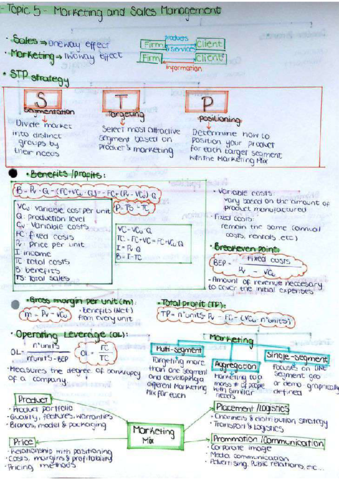 Topic 5 - Marketing and Sales Management
· Sales => oneway effect
· Marketing => twoway effect
Firm
products & services
Client
Firm
Client
information
· STP strategy
S
segmentation
Divide market into distinct groups by their needs
T
Targeting
Select most attractive segment based on product & marketing
P
positioning
Determine how to position your product for each target segment with the Marketing Mix
· Benefits/profits:
VC: variable cost per unit
Q: production level
Cv: variable costs
FC: fixed costs
Pv: price per unit
I: income
TC: total costs
B: benefits
TS: total sales
I = Pv · Q
B = I - TC
· Variable costs:
vary based on the amount of product manufactured
· Fixed costs:
remain the same (annual costs, rentals, etc.)
· Breakeven point:
BEP = fixed costs
Pv - VC
- Amount of revenue necessary to cover the initial expenses
· Gross margin per unit (m)
m = Pv - VCu
- benefits get from every unit
· Total profit (TP):
· Operating Leverage (OL):
OL = n'units
n'units - BEP
OL = FC
TC
- Measures the degree of
of a company.
Marketing
Multi-segment
Targeting more than one segment and developing a different Marketing Mix for each
Aggregation
Marketing to a mass of people with similar needs
Single-segment
focuses on one segment
defined
Marketing Mix
Product
· Product portfolio
· Quality, features, warranties
· Brands, model & packaging
Price
· Relationship with positioning
· Costs, margins & profitability
· Pricing methods
Placement/Logistics
· Channels & distribution strategy
· Transport & Logistics
Prommation/Communication
· Corporate image
· Media communication
· Advertising, Public relations, etc...